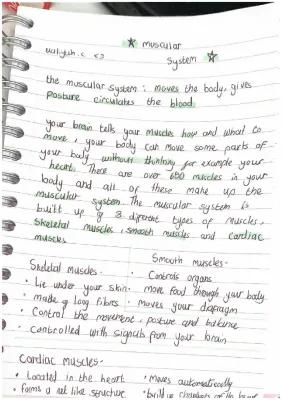 ☆ muscular
waliyah.c <3 system ☆
the muscular system : moves the body, gives
posture circulates the blood.
your brain tells your muscles how and what to
move, your body can move some parts of
your body without thinking for example your
heart. There are over 600 muscles in your
body and all of these make up the
muscular system. The muscular system is
built up of 3 different types of muscles,
Skeletal muscles, smooth muscles and cardiac
muscles
Skeletal muscles -
• Lie under your skin
• made of long fibres
• Control the movement, posture and balance
• Controlled with signals from your brain
Smooth muscles -
• Controls organs
• move food through your body
• moves your diaphragm
Cardiac muscles -
• Located in the heart
• forms a net like structure
• moves automatically
• build up chambers of the heart